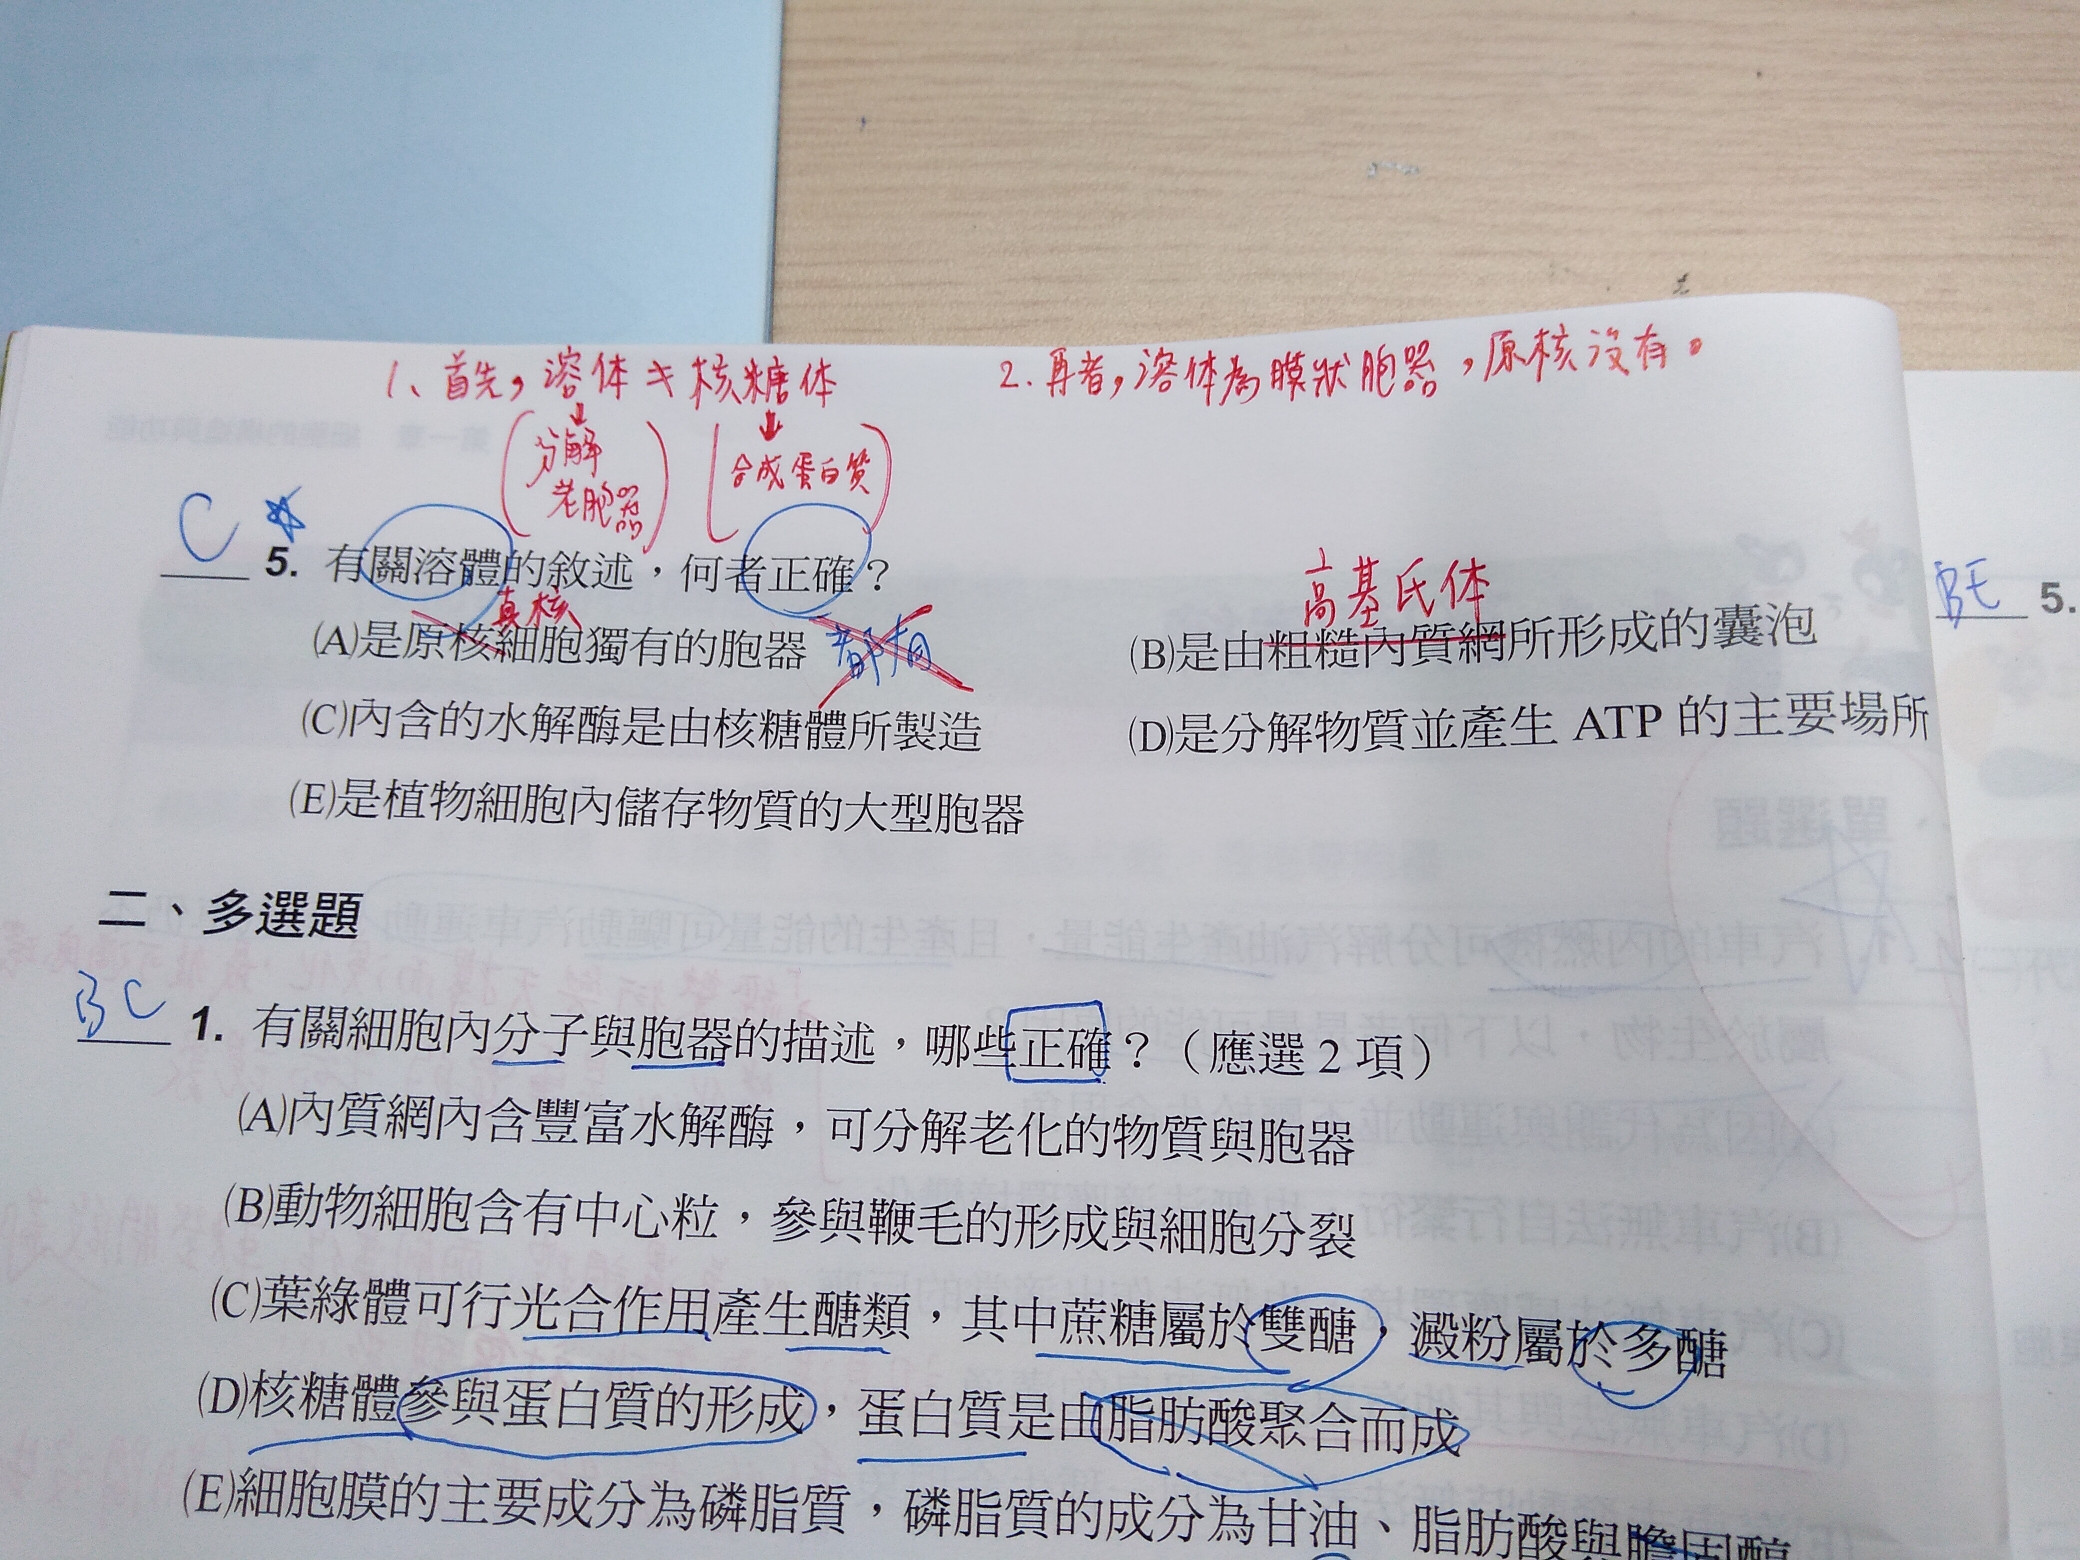 1、首先，溶体≠核糖体
2. 再者，溶体為膜狀胞器，原核沒有。
分解
老胞器
合成蛋白質
C
5. 有關溶體的敘述，何者正確？
真核
高基氏体
(A)是原核細胞獨有的胞器 都有
(B)是由粗糙內質網所形成的囊泡
(C)內含的水解酶是由核糖體所製造
(D)是分解物質並產生 ATP 的主要場所
(E)是植物細胞內儲存物質的大型胞器
BE 5.
二、多選題
BC 1. 有關細胞內分子與胞器的描述，哪些正確？（應選 2 項）
(A)內質網內含豐富水解酶，可分解老化的物質與胞器
(B)動物細胞含有中心粒，參與鞭毛的形成與細胞分裂
(C)葉綠體可行光合作用產生醣類，其中蔗糖屬於雙醣，澱粉屬於多醣
(D)核糖體參與蛋白質的形成，蛋白質是由脂肪酸聚合而成
(E)細胞膜的主要成分為磷脂質，磷脂質的成分為甘油、脂肪酸與膽固醇